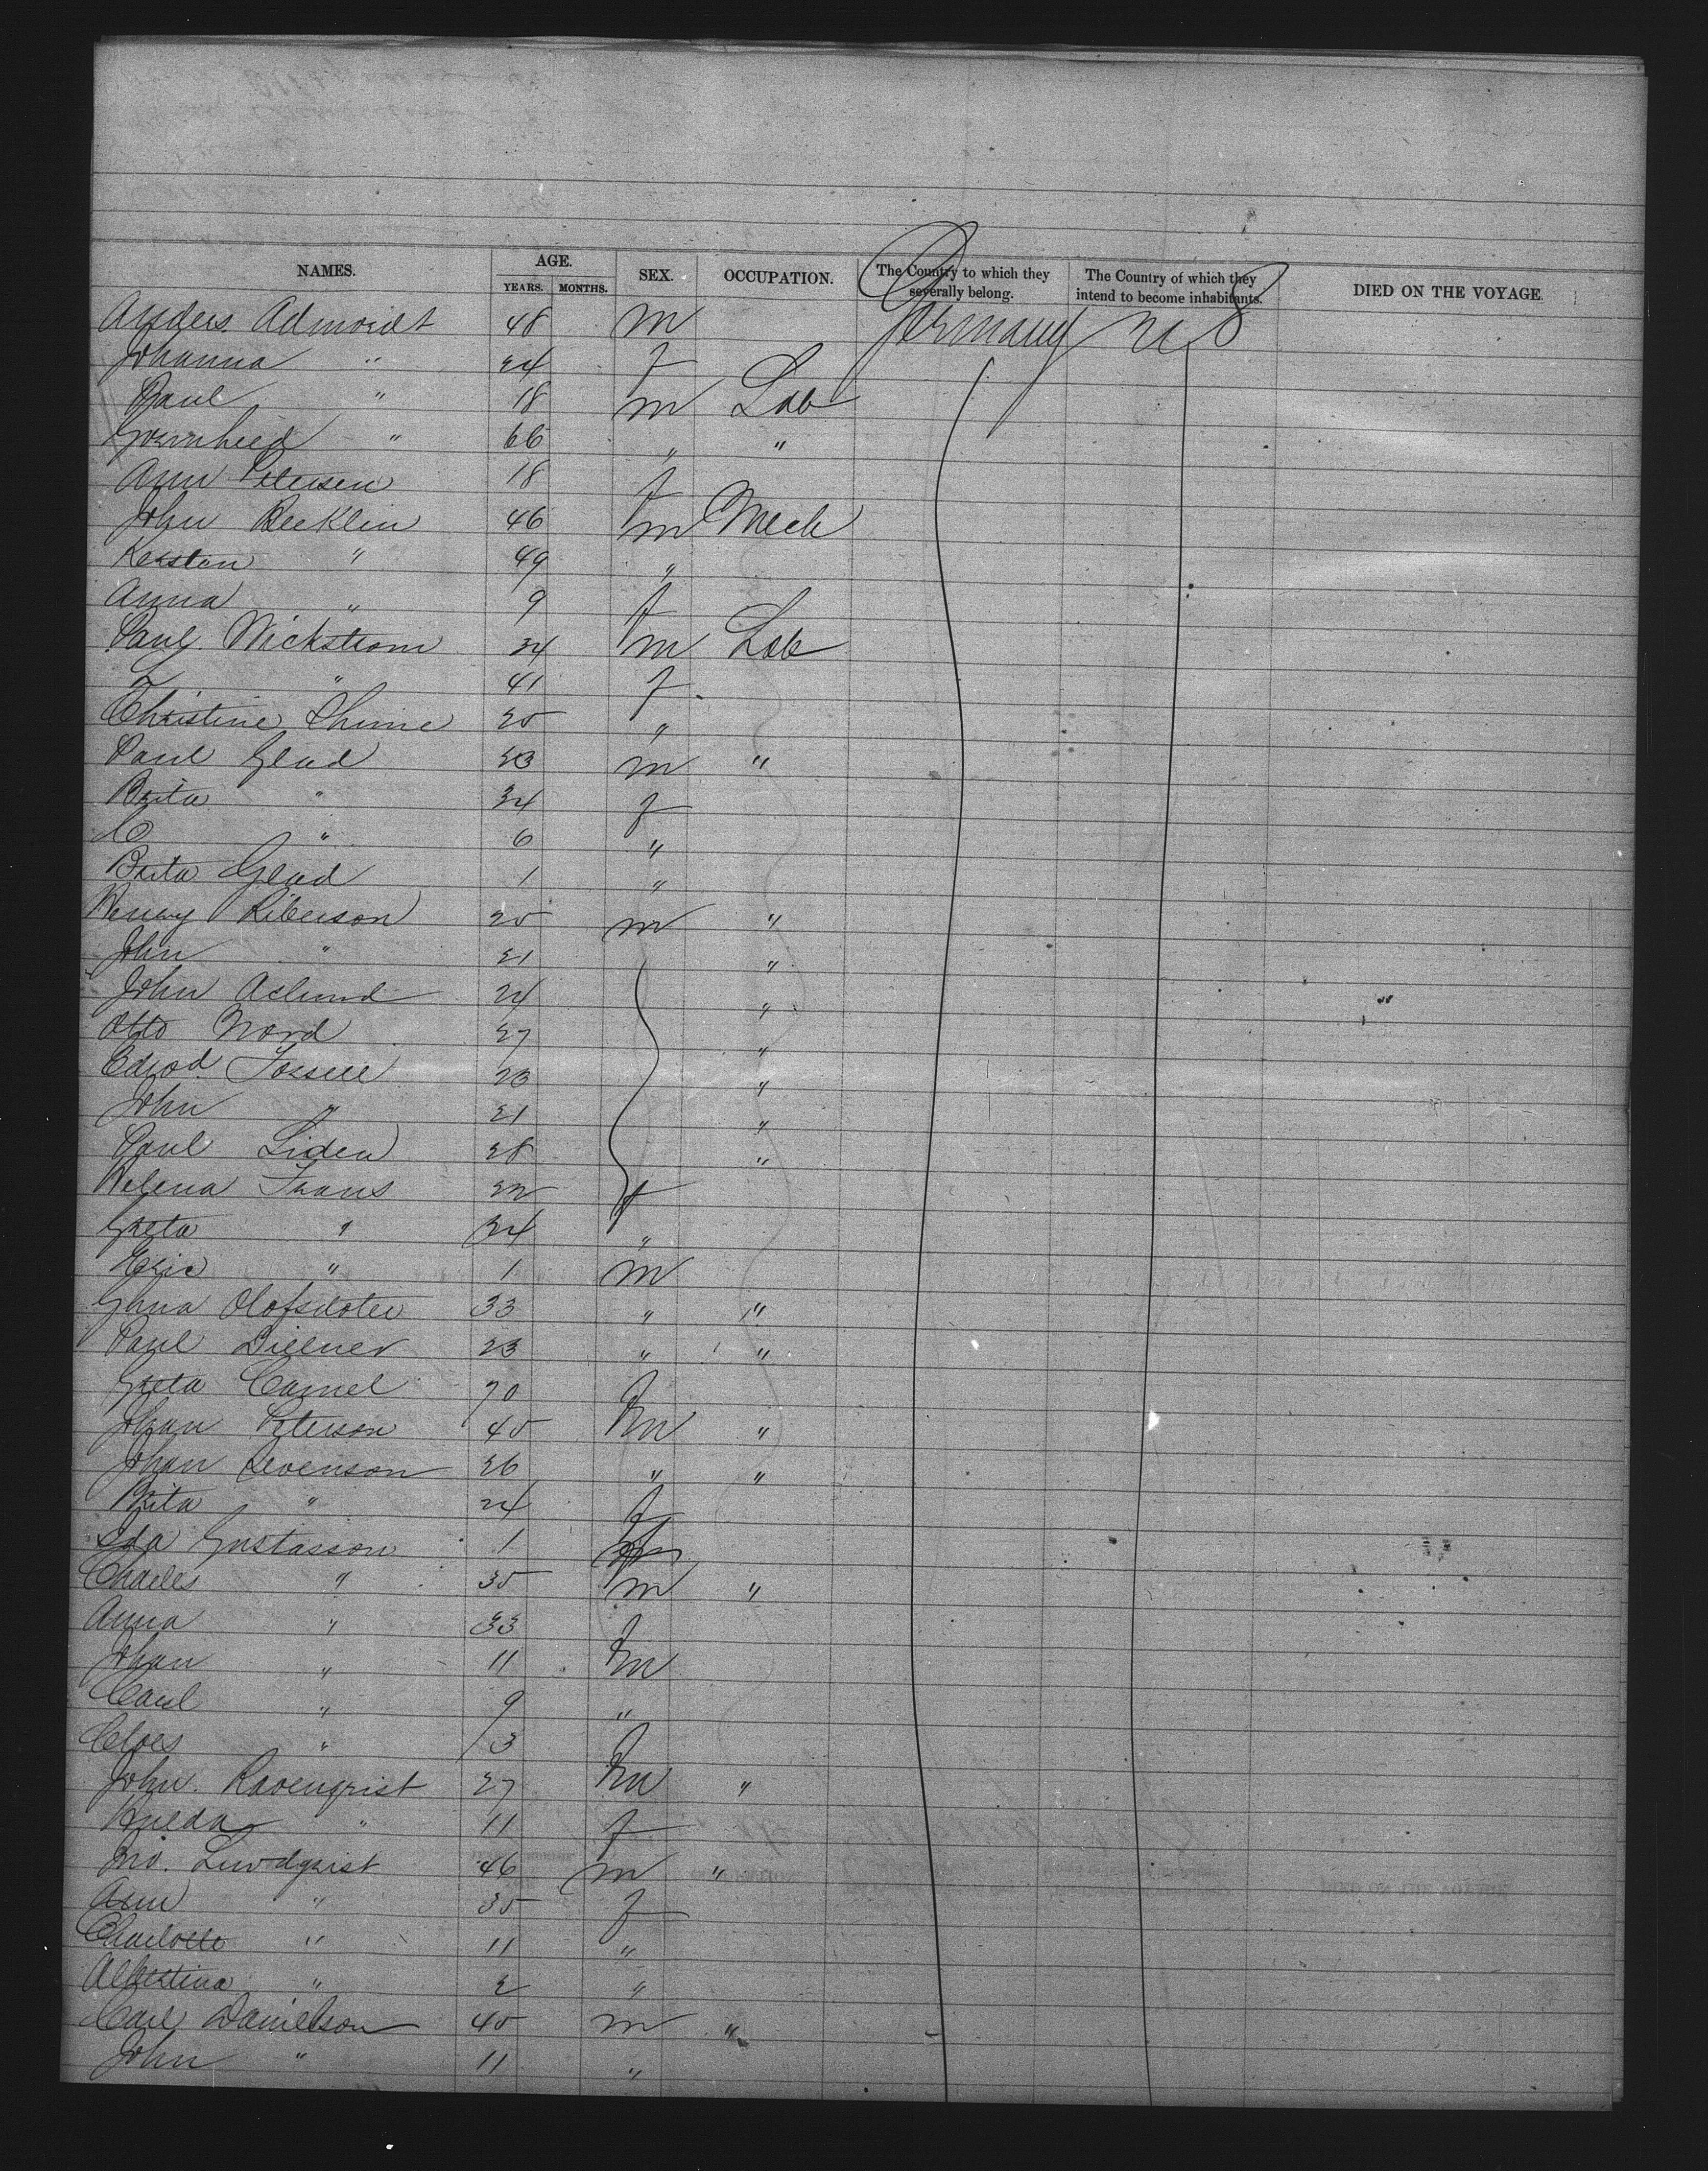 NAMES. AGE. YEARS. MONTHS. SEX. OCCUPATION. The Country to which they severally belong. The Country of which they intend to become inhabitants. DIED ON THE VOYAGE.
Anders 48 m Germany U S
Johanna " 24 f
Paul " 18 m Lab
" 66 " "
Ann Petersen 18 f
John Becklin 46 m Mech
Kersten " 49 "
Anna " 9 f
Paul Wickstrom 34 m Lab
" 41 f
Christine 20 "
Paul Glad 23 m "
Brita " 34 f
" 6 "
Brita Glad 1 "
Henry Liberson 20 m "
John " 21 "
John Aclund 24 "
Otto Nord 27 "
23 "
John " 21 "
Paul Liden 28 "
Helena Frans 22 f
Greta " 34 "
Eric " 1 m
Olofsdoter 33 " "
Paul 23 " "
Greta Camel 70 f
Johan Peterson 40 m "
Johan Levenson 26 " "
Brita " 24 f
Ida Gustasson 1 f
Charles " 35 m "
Anna " 33 f
Johan " 11 m
Carl " 9 "
Cloes " 3 f
John Ravenqrist 27 m "
Hulda " 11 f
Jno. Lindqrist 46 m "
Ann " 35 f
Charlotte " 11 "
Albertina " 2 "
Carl Danielson 40 m "
John " 11 "